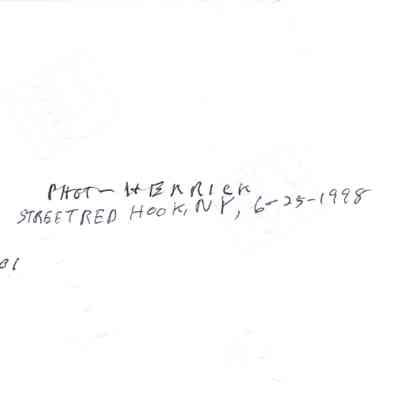 PHOT- HERRICK
STREET RED HOOK, NY, 6-25-1998
01